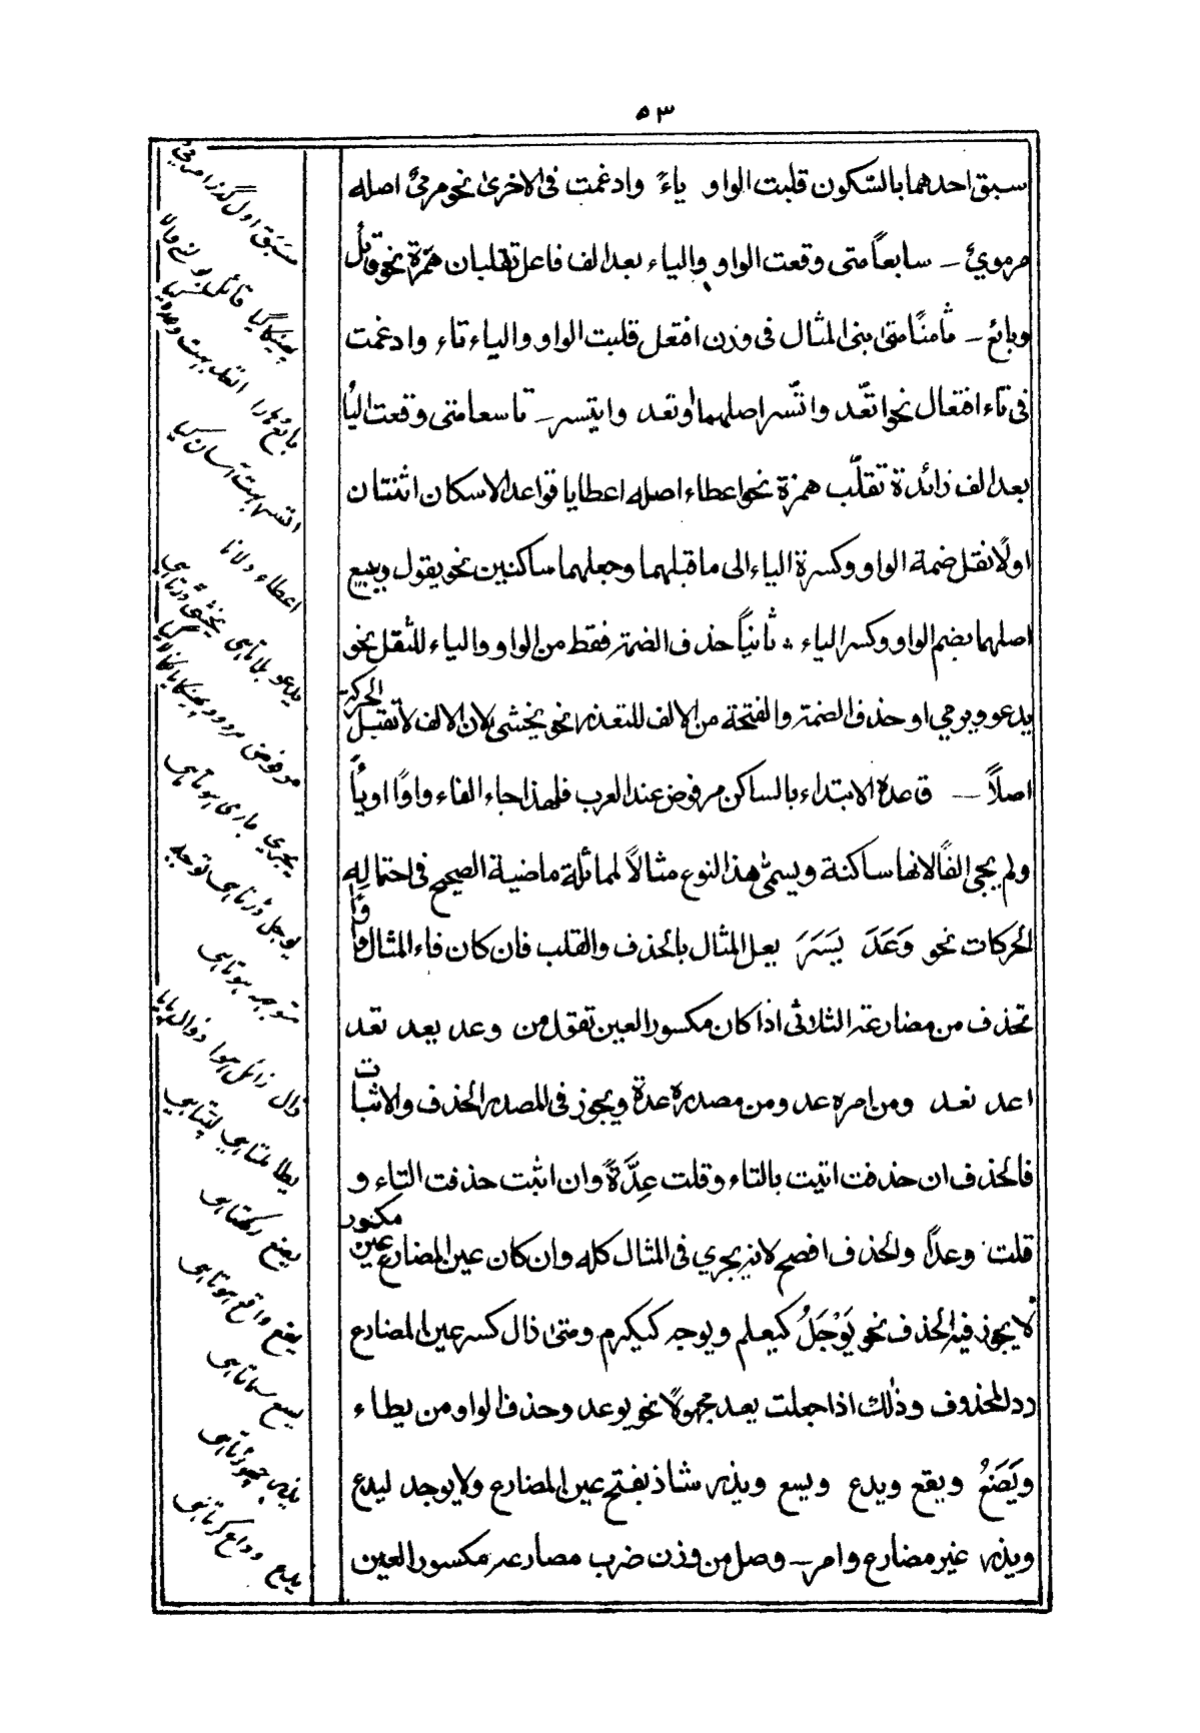 ٥٣
سبق احدهما بالسّكون قلبت الواو ياءً وادغمت فى الاخرىٰ نحو مرمىٌّ اصله
مرموىٌ ــ سابعاً متى وقعت الواو والياء بعد الف فاعل تقلبان همزة نحو قائل
وبائع ــ ثامنًا متى بنى المثال فى وزن افتعل قلبت الواو والياء تاء وادغمت
فى تاء افتعال نحو اتّعد واتّسر اصلهما اوتعد وايتسر ــ تاسعا متى وقعت اليا
بعد الف زائدة تقلّب همزة نحو اعطاء اصله اعطايا قواعد الاسكان اثنتان
اولًا نقل ضمة الواو وكسرة الياء الى ما قبلهما وجعلهما ساكنين نحو يقول ويبيع
اصلهما بضم الواو وكسر الياء ؞ ثانياً حذف الضمة فقط من الواو والياء للثقل نحو
يدعو ويرمي او حذف الضمة والفتحة من الالف للتعذر نحو يخشى لان الالف لا تقبل الحركة
اصلاً ــ قاعدة الابتداء بالساكن مرفوض عند العرب فلهذا جاء الفاء واوًا او ياً
ولم يجى الفًا لانها ساكنة ويسمّٰى هذا النوع مثالاً لمماثلة ماضية الصحيح فى احتماله
الحركات نحو وَعَدَ يَسَرَ يعل المثال بالحذف والقلب فان كان فاء المثال واوًا
تحذف من مضارعه الثلاثى اذا كان مكسور العين تقول من وعد يعد تعد
اعد نعد ومن امره عد ومن مصدره عدة ويجوز فى المصدر الحذف والاثبات
فالحذف ان حذفت اتيت بالتاء وقلت عِدَةً وان اثبت حذفت التاء و
قلت وعداً والحذف افصح لانه يجري فى المثال كله وان كان عين المضارع غير مكسور
لا يجوز فيه الحذف نحو يَوْجَلُ كيعلم ويوجه كيكرم ومتىٰ زال كسر عين المضارع
رد المحذوف وذٰلك اذا جعلت يعد مجهولاً نحو يوعد وحذف الواو من يطاء
ويَضَعُ ويقع ويدع ويسع ويذر شاذ بفتح عين المضارع ولا يوجد ليدع
ويذر غير مضارع وامر ــ وصل من وزن ضرب مضارعه مكسور العين
سَبَق اول گذرا
قائل بولنے والا
بائع
اتسر بہت آسان کیا
اعطاء دلانا
يدعو بلاتاہی يخشى ڈرتاہی
يجري جاری ہوتاہی
يوجل ڈرتاہی توجيه
متوجہ ہوتاہی
زال زائل ہوا زوال پایا
يضع رکھتاہی
يقع واقع ہوتاہی
يسع سماتاہی
يذر چھوڑتاہی
يدع وداع کرتاہی